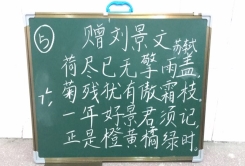 ⑤ 赠刘景文
苏轼
荷尽已无擎雨盖
菊残犹有傲霜枝
一年好景君须记
正是橙黄橘绿时